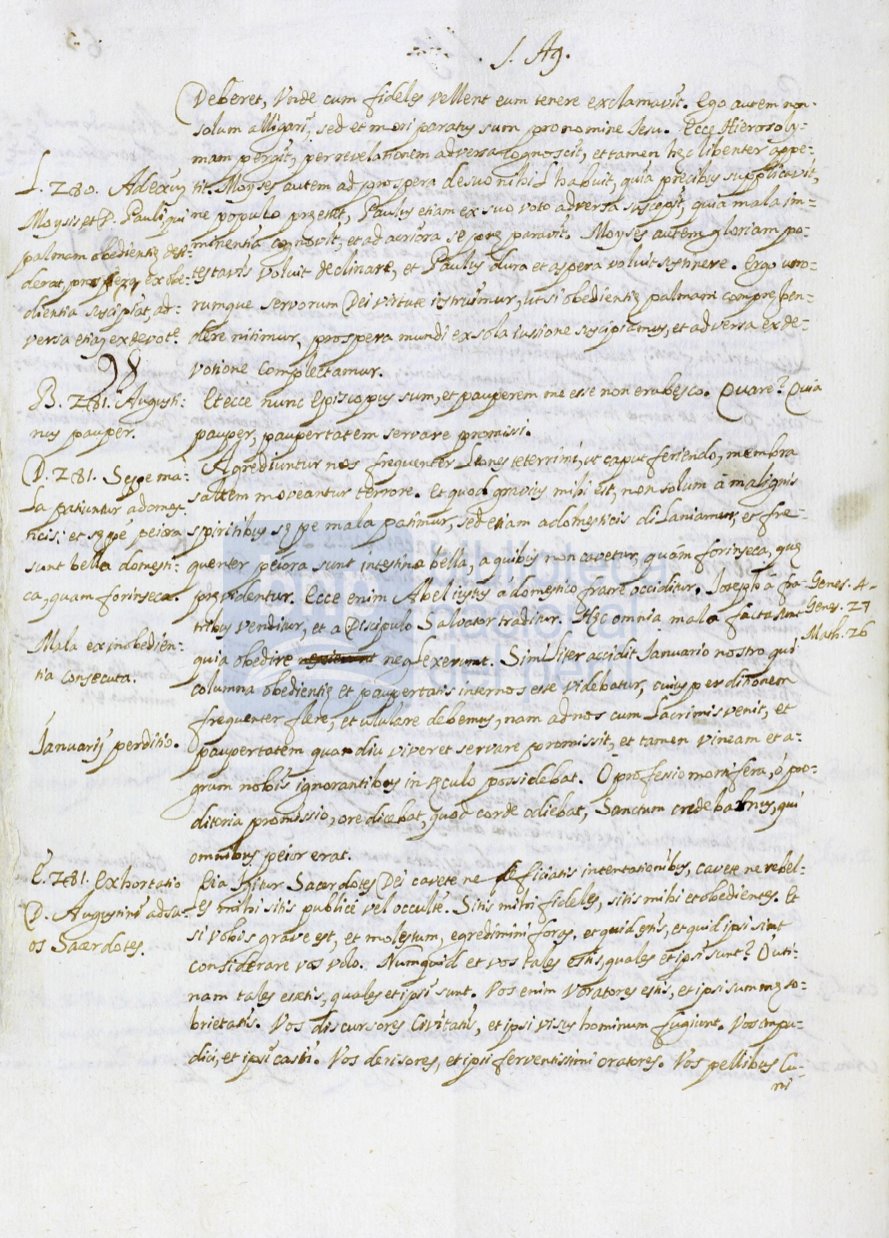 S. Ag.
Deberet, Vnde cum fideles vellent eum tenere exclamavit. Ego autem non
solum alligari, sed et mori paratus sum pro nomine Iesu. Ecce Hierosoly-
mam pergit, per revelationem adversa cognoscit, et tamen hęc libenter appe-
tit. Moyses autem ad prospera de suo nihil habuit, quia precibus supplicavit,
ne populo preẽet, Paulus etiam ex suo voto adversa suscepit, quia mala im-
minentia cognovit, et ad acriora se pręparavit. Moyses autem gloriam po-
testatis voluit declinare, et Paulus dura et aspera voluit sustinere. Ergo utro-
rumque servorum Dei virtute instruimur, ut si obedientię palmam comprehen-
dere nitimur, prospera mundi ex sola iussione suscipiamus, et adversa ex de-
votione complectamur.
L. 281. Ad exẽm
Moysis et D. Pauli qui
palmam obedientię desi-
derat, prospera ex obe-
dientia suscipiat, ad-
versa etiam ex devot.e
98
B. 281. Augusti-
nus pauper.
Et ecce nunc Episcopus sum, et pauperem me esse non erubesco. Quare? Quia
pauper, paupertatem servare promissi.
D. 281. Sępe ma-
la patiuntur a domes-
ticis; et sępe peiora
sunt bella domesti-
ca, quam forinseca.
Mala ex inobedien-
tia consecuta.
Agrediuntur nos frequenter Leones teterrimi, ut caput feriendo, membra
saltem moveantur terrore. Et quod gravius mihi est, non solum à malignis
spiritibus sępe mala patimur, sed etiam a domesticis dilaniamur, et fre-
quenter peiora sunt intestina bella, a quibus non cavetur, quàm forinseca, quę
prevĩdentur. Ecce enim Abel iustus á domestico fratre occiditur. Ioseph â fra-
tribus venditur, et a Discipulo Salvator traditur. Hęc omnia mala facta sunt
quia obedire neglexerunt. Similiter accidit Ianuario nostro qui
columna obedientię et paupertatis inter nos esse videbatur, cuius perditionem
frequenter flere, et ululare debemus, nam ad nos cum Lacrimis venit, et
paupertatem quandiu viveret servare promissit, et tamen vineam et a-
grum nobis ignorantibus in sęculo possidebat. O professio mortifera, ô pro-
ditoria promissio, ore dicebat, quod corde odiebat, Sanctum credebamus, qui
omnibus peior erat.
Genes. 4
Genes. 27
Math. 26
Ianuarij perditio.
E. 281. Exhortatio
D. Augustini ad su-
os Sacerdotes.
Eia igitur Sacerdotes Dei cavete ne deficiatis in tentationibus, cavete ne rebel-
les mihi sitis publicè vel occultè. Sitis mihi fideles, sitis mihi et obedientes. Et
si vobis grave est, et molestum, egredimini foras, et quid estis, et quid ipsi sint
considerare vos volo. Numquid et vos tales estis, quales et ipsi sunt? O uti-
nam tales essetis, quales et ipsi sunt. Vos enim Voratores estis, et ipsi summę so-
brietatis. Vos discursores Civitatis, et ipsi visus hominum fugiunt. Vos impu-
dici, et ipsi casti. Vos derisores, et ipsi ferventissimi oratores. Vos pellibus cu-
ni
biblioteca
nacional
del perú